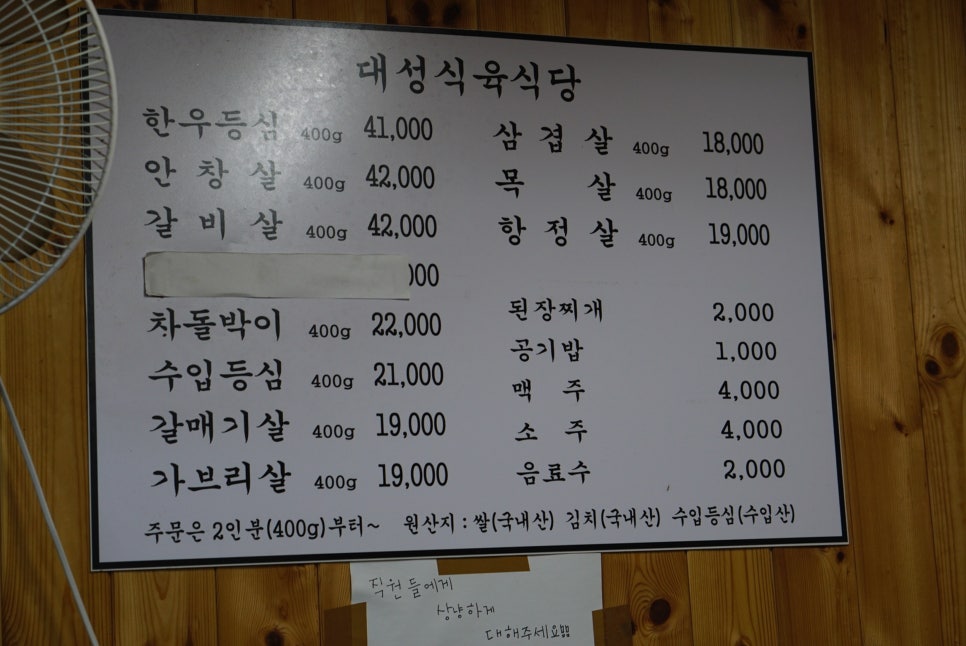 대성식육식당
한우등심 400g 41,000
안창살 400g 42,000
갈비살 400g 42,000
000
차돌박이 400g 22,000
수입등심 400g 21,000
갈매기살 400g 19,000
가브리살 400g 19,000
삼겹살 400g 18,000
목살 400g 18,000
항정살 400g 19,000
된장찌개 2,000
공기밥 1,000
맥주 4,000
소주 4,000
음료수 2,000
주문은 2인분(400g)부터~ 원산지 : 쌀(국내산) 김치(국내산) 수입등심(수입산)
직원들에게
상냥하게
대해주세요